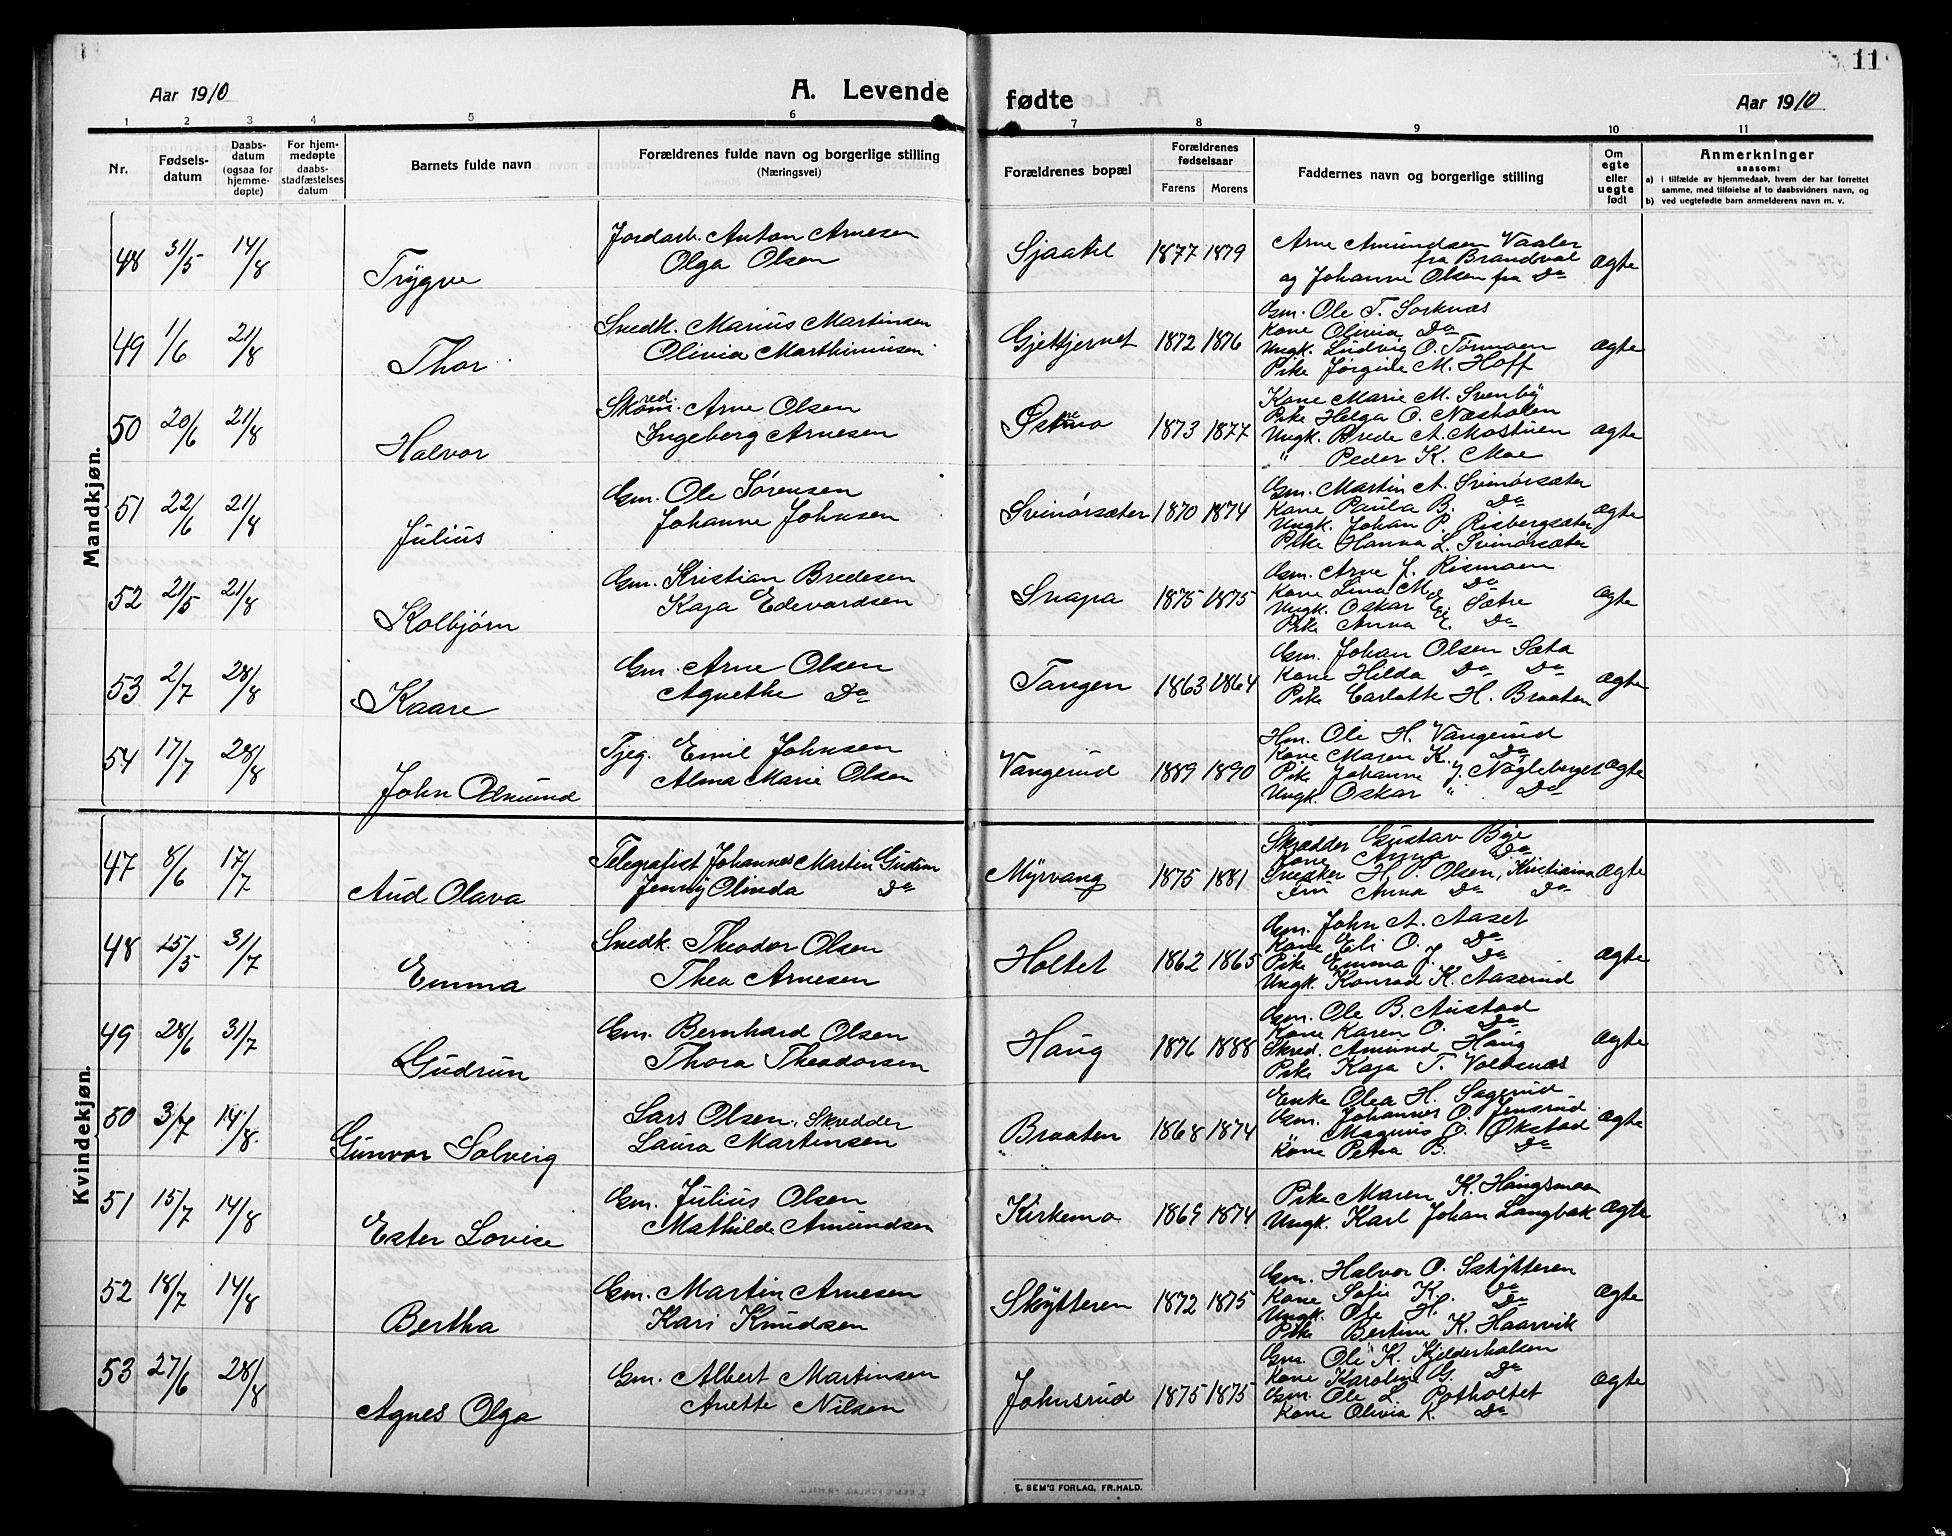 11
Aar 1910
A. Levende fødte
Aar 1910
1 2 3 4 5 6 7 8 9 10 11
Nr.
Fødsels-
datum
Daabs-
datum
(ogsaa for
hjemme-
døpte)
For hjem-
medøpte
daabs-
stadfæstelses
datum
Barnets fulde navn
Forældrenes fulde navn og borgerlige stilling
(Næringsvei)
Forældrenes bopæl
Forældrenes
fødselsaar
Farens Morens
Faddernes navn og borgerlige stilling
Om
egte
eller
uegte
født
Anmerkninger
saasom:
a) i tilfælde av hjemmedaab, hvem der har forrettet
samme, med tilføielse af to daabsvidners navn, og
b) ved uegtefødte barn anmelderens navn m. v.
Mandkjøn.
48 31/5 14/8 Trygve
Jordarb. Anton Arnesen
Olga Olsen
Sjaatil 1877 1879
Arne Amundsen Vaaler
fra Brandval
og Johanne Olsen fra Do
ægte
49 1/6 21/8 Thor
Snedk. Marius Martinsen
Olivia Marthinusen
Gjetjernet 1872 1876
Gm. Ole T. Sorknæs
Kone Olivia Do
Ungk. Ludvig O. Tørmoen
Pike Jørgine M. Hoff
ægte
50 20/6 21/8 Halvor
Arne Olsen
Ingeborg Arnesen
Østmo 1873 1877
Kone Marie M. Svenby
Pike Helga O. Næsholen
Ungk. Brede A. Mostuen
" Peder K. Moe
ægte
51 22/6 21/8 Julius
Gm. Ole Sørensen
Johanne Johnsen
Svinørsæter 1870 1874
Gm. Martin A. Svinørsæter
Kone Paula B. Do
Ungk. Johan P. Risbergsæter
Pike Hanna L. Svinørsæter
ægte
52 21/5 21/8 Kolbjørn
Gm. Kristian Bredesen
Kaja Edevardsen
Snapa 1875 1875
Gm. Arne J. Rismoen
Kone Lina M. Do
Ungk. Oskar E. Sætre
Pike Anna E. Do
ægte
53 2/7 28/8 Kaare
Gm. Arne Olsen
Agnethe Do
Tangen 1863 1864
Gm. Johan Olsen Sæta
Kone Hilda Do Do
Pike Carlotte H. Braaten
ægte
54 17/7 28/8 John Asmund
Tjeg. Emil Johnsen
Alma Marie Olsen
Vangerud 1889 1890
Hm. Ole H. Vangerud
Kone Maren K. Do
Pike Johanne J. Nøgleberget
Ungk. Oskar " Do
ægte
Kvindekjøn.
47 8/6 17/7 Aud Olava
Telegrafist Johannes Martin Gudim
Jenny Olinda Do
Myrvang 1875 1881
Skrædder Gustav Bye
Kone Anna Do
Snedker H. P. Olsen, Kristiania
Fru Anna Do Do
ægte
48 15/5 31/7 Emma
Snedk. Theodor Olsen
Thea Arnesen
Holtet 1862 1865
Gm. John A. Aaset
Kone Eli O. Do
Pike Emma J. Do
Ungk. Konrad K. Aaserud
ægte
49 28/6 31/7 Gudrun
Gm. Bernhard Olsen
Thora Theodorsen
Haug 1876 1888
Gm. Ole B. Austad
Kone Karen O. Do
Skred. Amund Haug
Pike Kaja T. Voldnæs
ægte
50 3/7 14/8 Gunvor Solveig
Lars Olsen, Skredder
Laura Martinsen
Braaten 1868 1874
Enke Olea H. Sagerud
Gm. Johannes O. Jensrud
Magnus O. Økstad
Kone Petra B. Do
ægte
51 15/7 14/8 Ester Lovise
Gm. Julius Olsen
Mathilde Amundsen
Kirkemo 1869 1874
Pike Maren K. Haugsmoen
Ungk. Karl Johan Langbak
ægte
52 18/7 14/8 Bertha
Gm. Martin Arnesen
Kari Knudsen
Skytteren 1872 1875
Gm. Halvor O. Skytteren
Kone Sofie K. Do
Ungk. Ole H. Do
Pike Bertine K. Haarvik
ægte
53 27/6 28/8 Agnes Olga
Gm. Albert Martinsen
Anette Nilsen
Johnsrud 1875 1875
Gm. Ole K. Kjelderholsen
Kone Karoline G. Do
Gm. Ole L. Potholtet
Kone Olivia K. Do
ægte
E. SEM'S FORLAG, FR.HALD.